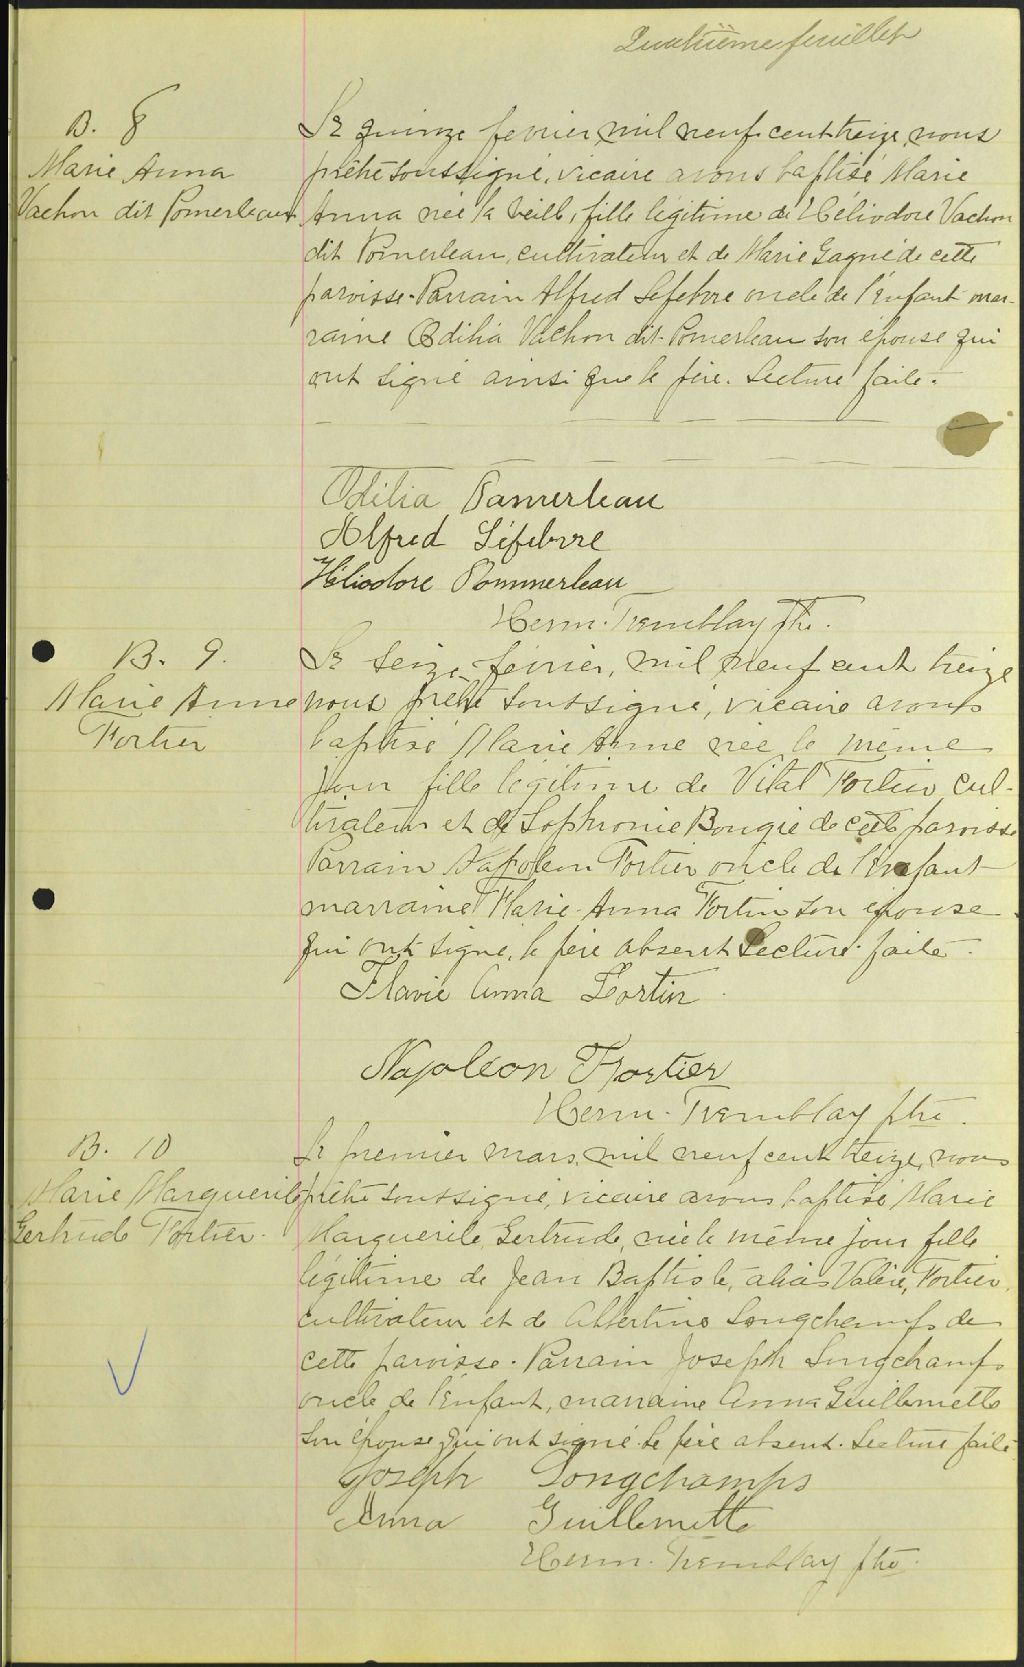 Quatrième feuillet
B. 8
Marie Anna
Vachon dit Pomerleau
Le quinze fevrier mil neuf cent treize, nous
prêtre soussigné, vicaire avons baptisé Marie
Anna née la veille, fille légitime de Héliodore Vachon
dit Pomerleau, cultivateur et de Marie Gagné de cette
paroisse. Parrain Alfred Lefebvre oncle de l'enfant mar-
raine Odilia Vachon dit Pomerleau son épouse qui
ont signé ainsi que le père. Lecture faite.
Odilia Pomerleau
Alfred Léfebvre
Héliodore Pommerleau
Herm. Tremblay ptre.
B. 9.
Marie Anne
Fortier
Le seize février, mil neuf cent treize
nous prêtre soussigné, vicaire avons
baptisé Marie Anne née le même
jour fille légitime de Vital Fortier cul-
tivateur et de Sophronie Bougie de cette paroisse
Parrain Napoléon Fortier oncle de l'enfant
marraine Flavie Anna Fortin son épouse
qui ont signé, le père absent Lecture faite.
Flavie Anna Fortin
Napoléon Fortier
Herm. Tremblay ptre.
B. 10
Marie Marguerite
Gertrude Fortier.
Le premier mars, mil neuf cent treize, nous
prêtre soussigné, vicaire avons baptisé Marie
Marguerite, Gertrude, née le même jour fille
légitime de Jean Baptiste, alias Valère, Fortier,
cultivateur et de Albertine Longchamps de
cette paroisse. Parrain Joseph Longchamps
oncle de l'enfant, marraine Anna Guillemette
son épouse qui ont signé le père absent. Lecture faite
Joseph Longchamps
Anna Guillemette
Herm. Tremblay ptre.